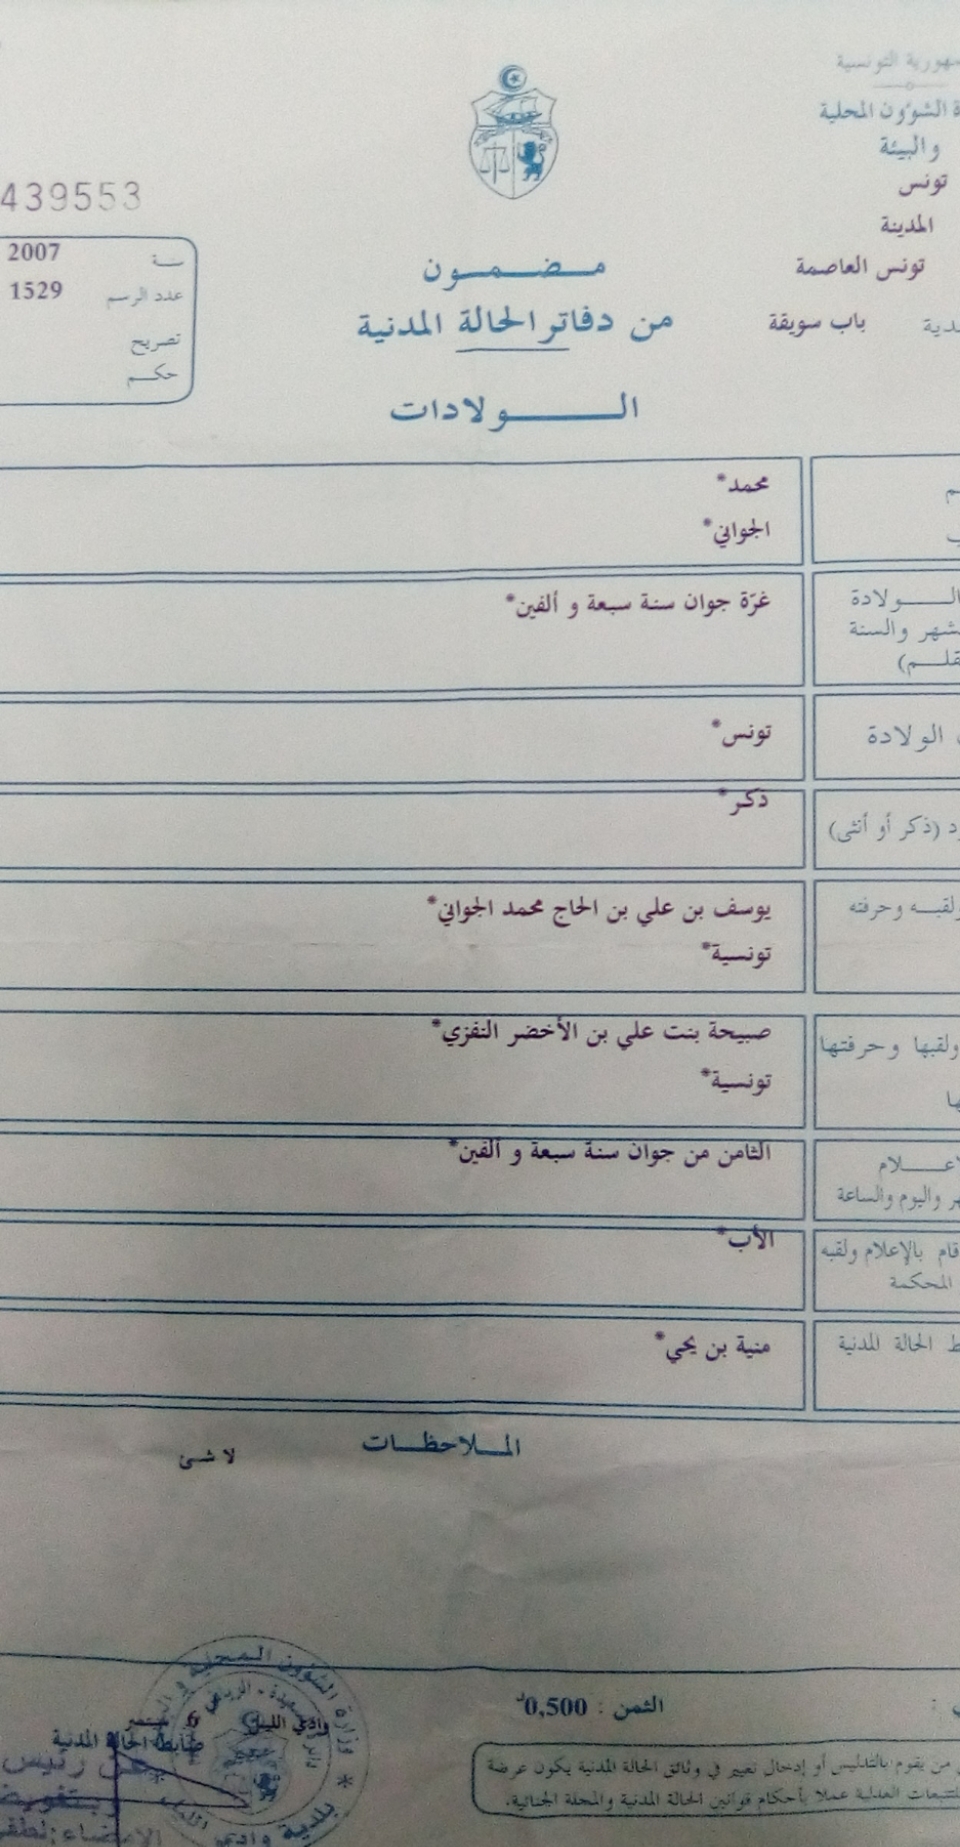 التونسية
الشؤون المحلية
والبيئة
تونس
المدينة
تونس العاصمة
باب سويقة
439553
سنة 2007
عدد الرسم 1529
تصريح
حكم
مضمون
من دفاتر الحالة المدنية
الولادات
محمد*
الجواني*
الولادة
والسنة
غرّة جوان سنة سبعة و ألفين*
الولادة
تونس*
(ذكر أو أنثى)
ذكر*
وحرفته
يوسف بن علي بن الحاج محمد الجواني*
تونسية*
ولقبها وحرفتها
صبيحة بنت علي بن الأخضر النفزي*
تونسية*
واليوم والساعة
الثامن من جوان سنة سبعة و ألفين*
قام بالإعلام ولقبه
المحكمة
الأب*
الحالة المدنية
منية بن يحي*
الملاحظات
لا شئ
الثمن : 0,500د
من يقوم بالتدليس أو إدخال تغيير في وثائق الحالة المدنية يكون عرضة
للتتبعات العدلية عملا بأحكام قوانين الحالة المدنية والمجلة الجنائية.
وادي الليل
ضابط الحالة المدنية
رئيس